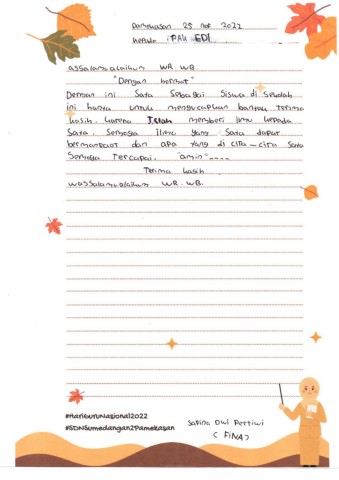 Pamekasan 25 nof 2022
kepada : PAK EDI
assalamualaikum WR. WB.
"Dengan hormat"
Dengan ini Saya Sebagai Siswa di Sekolah
ini hanya untuk mengucapkan banyak terima
kasih. karena Telah memberi ilmu kepada
Saya. Semoga ilmu yang Saya dapat
bermanfaat dan apa yang di cita-cita Saya
Semoga Tercapai. "amin"----
Terima kasih
wassalamualaikum WR. WB.
#HariGuruNasional2022
#SDNSumedangan2Pamekasan
Safina Dwi Pertiwi
( FiNA )